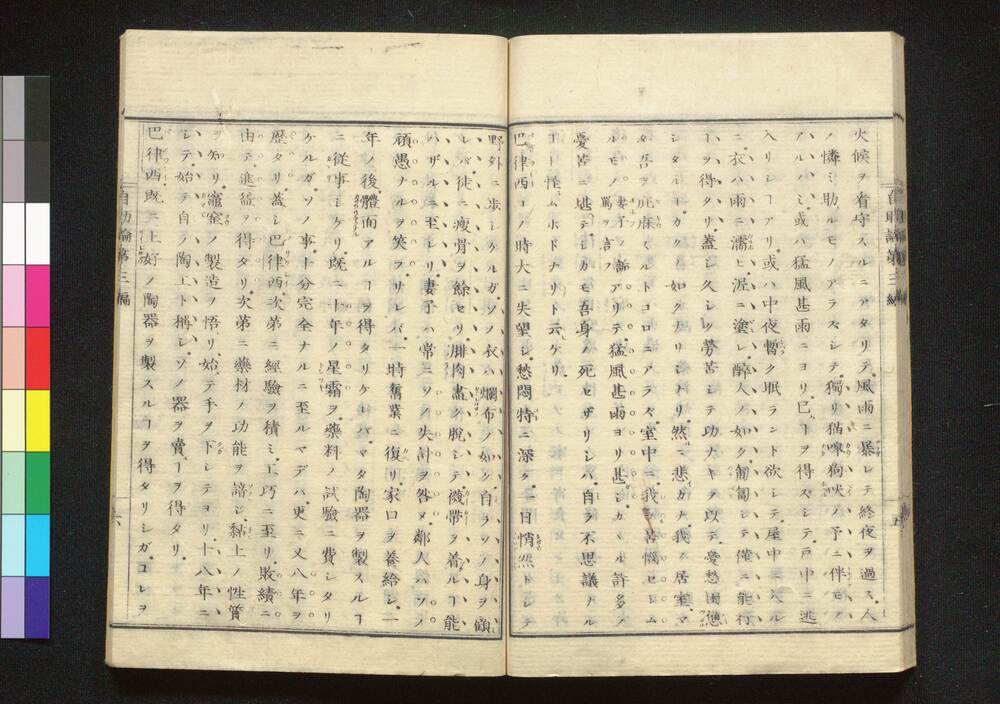 火候ヲ看守スルニアタリテ風雨ニ暴レテ終夜ヲ過ス人
ノ憐ミ助ルモノアラズシテ獨リ猫嘷狗吠ノ予ニ伴モノ
アルノミ或ハ猛風甚雨ニヨリ已ヿヲ得スシテ戸中ニ逃
入リシヿアリ或ハ中夜暫ク眠ラント欲シテ屋中ニ入ル
ニ衣ハ雨ニ濡ヒ泥ニ塗レ醉人ノ如ク匍匐シテ僅ニ能行
ヿヲ得タリ蓋シ久シク勞苦シテ功ナキヲ以テ憂愁困憊
シタルヿカクノ如クナリシナリ然ニ悲カナ我ガ居室マ
タ吾ヲ庇蔭スルトコロニアラズ室中ニ我ヲ苦惱セシム
ルモノ妻子ノ詬罵ノ言アリテ猛風甚雨ヨリ甚シカヽル許多ノ
憂苦ニ堪テシカモ吾身ノ死セザリシハ自ラ不思議ナル
ヿト怪ムホドナリト云ケリ
巴律西コノ時大ニ失望シ愁悶特ニ深ク一日悄然トシテ
野外ニ歩シケルガソノ衣ハ爛布ノ如ク自ラソノ身ヲ顧
レバ徒ニ瘦骨ヲ餘セリ腓肉盡ク脱シテ襪帶ヲ着ルヿ能
ハザルニ至レリ妻子ハ常ニソノ失計ヲ咎メ鄰人ハソノ
頑愚ナルヲ笑フサレバ一時舊業ニ復リ家口ヲ養給シ一
年ノ後體面アルヿヲ得タリケレバマタ陶器ヲ製スルヿ
ニ從事シケリ既ニ十年ノ星霜ヲ藥料ノ試驗ニ費シタリ
ケルガソノ事十分完全ナルニ至ルマデハ更ニ又八年ヲ
歴タリ蓋シ巴律西次第ニ經驗ヲ積ミ工巧ニ至リ敗績ニ
由テ進益ヲ得タリ次第ニ藥材ノ功能ヲ諳シ黏土ノ性質
ヲ知リ竈窯ノ製造ヲ悟リ始テ手ヲ下シテヨリ十八年ニ
シテ始テ自ラ陶工ト稱シソノ器ヲ賣ヿヲ得タリ
巴律西既ニ上好ノ陶器ヲ製スルヿヲ得タリシガコレヲ
自助論第三編
五
自助論第三編
六